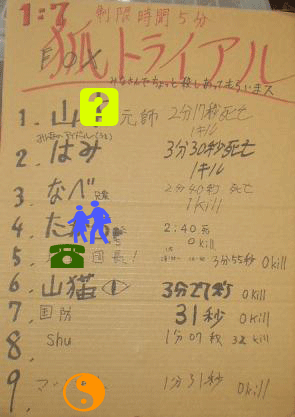 1:7 制限時間5分
狐トライアル
FOX
みなさんでちょっと殺しあってもらいまス
1. 山 元師 2分17秒死亡
1キル
2. はみ 3分30秒死亡
1キル
3. なべ 2分40秒 死亡
1kill
4. た 2:40 死
0kill
5. 団長! 3分55秒 0kill
6 山猫 3分27秒 0kill
7 国防 31秒 0kill
8 shu 1分07秒 kill
9. マッ 1分31秒 0kill